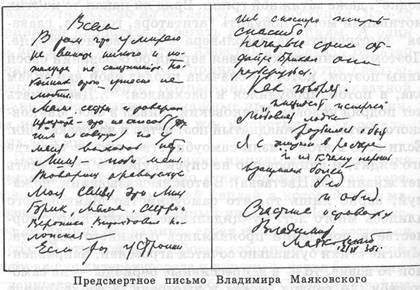 Всем
В том что умираю
не вините никого и по-
жалуйста не сплетничайте. По-
койник этого ужасно не
любил.
Мама, сестры и товарищи
простите – это не способ (дру-
гим не советую) но у
меня выходов нет.
Лиля – люби меня.
Товарищ правительство
Моя семья это Лиля
Брик, мама, сестры и
Вероника Витольдовна По-
лонская –
Если ты устроишь
им сносную жизнь
спасибо
Начатые стихи от-
дайте Брикам они
разберутся.
Как говорят –
инцидент исперчен
Любовная лодка
разбилась о быт
Я с жизнью в расчете
и не к чему перечень
взаимных болей
бед
и обид.
Счастливо оставаться
Владимир
Маяковский
12/IV 30г.
Предсмертное письмо Владимира Маяковского